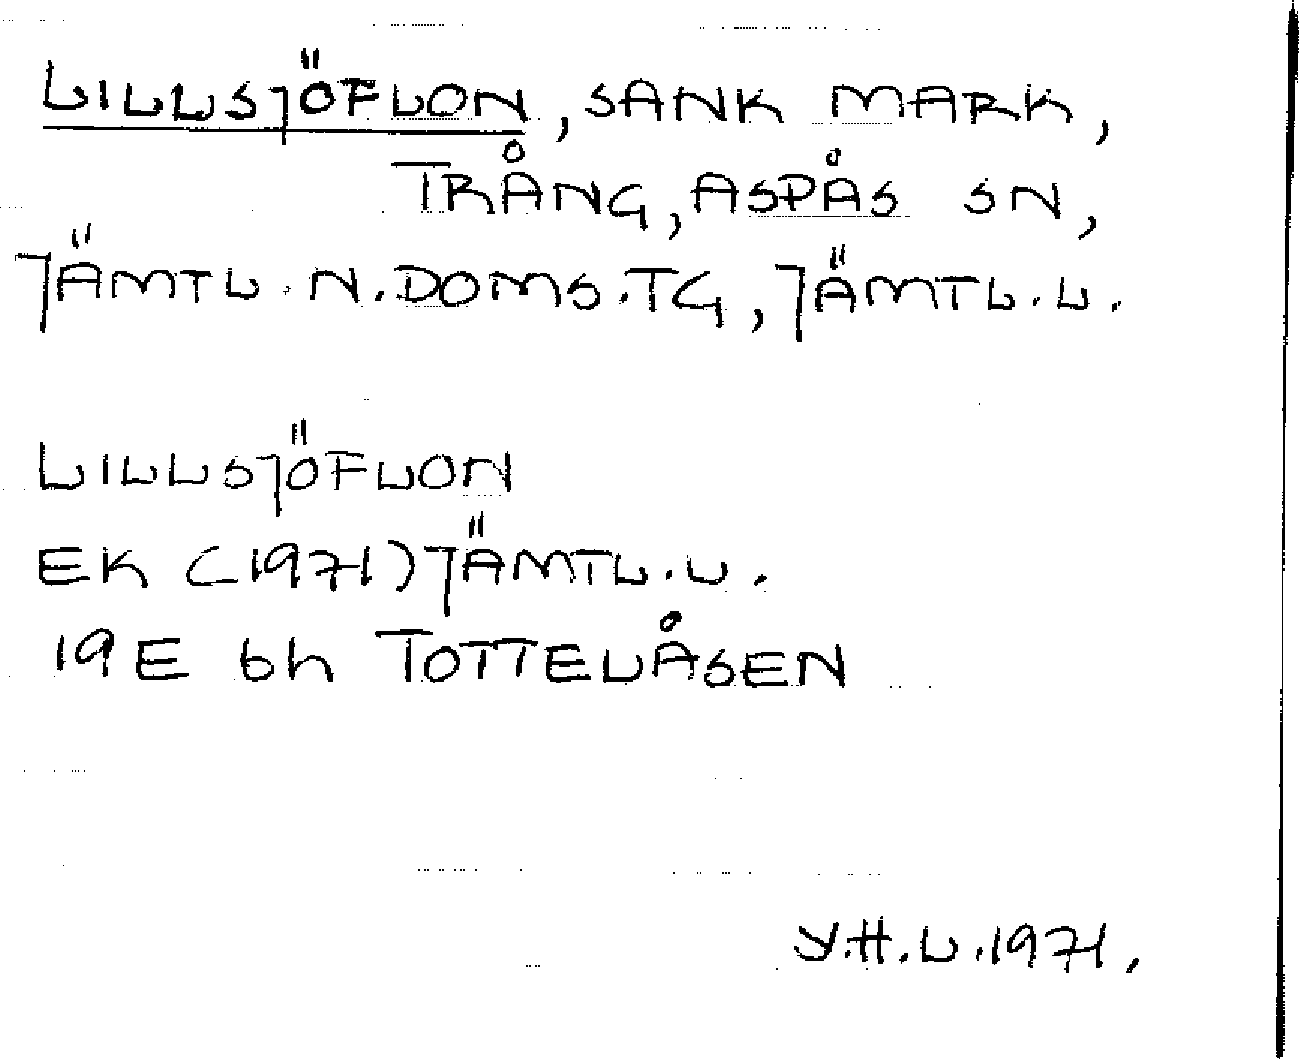 LILLSJÖFLON, SANK MARK,
TRÅNG, ASPÅS SN,
JÄMTL. N. DOMS. TG, JÄMTL. L.
LILLSJÖFLON
EK (1971) JÄMTL. L.
19E 6h TOTTELÅSEN
Y.H.L. 1971.